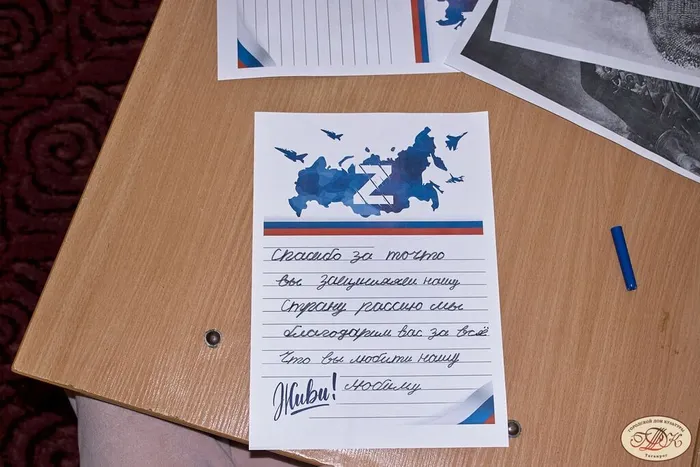 Z
Спасибо за точто
вы защищяжеи нашу
Страну рассию мы
благодарим вас за всё
Что вы любити нашу
Живи! любимую
ГОРОДСКОЙ ДОМ КУЛЬТУРЫ
ГДК
Таганрог